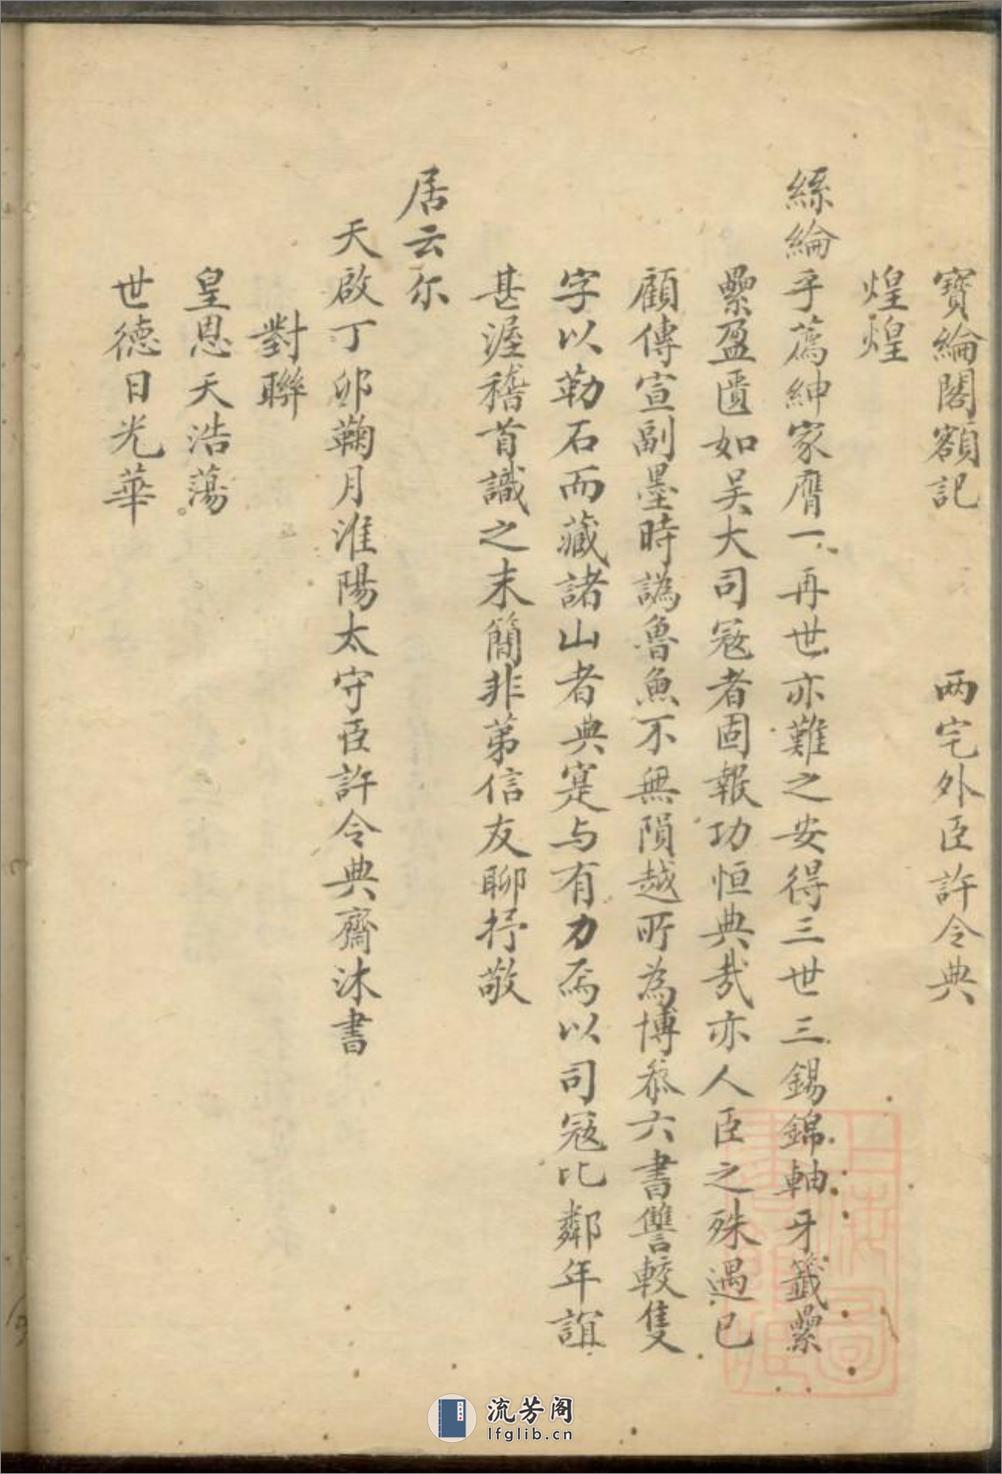 寶綸閣額記　兩宅外臣許令典
煌煌
絲綸乎薦紳家膺一再世亦難之安得三世三錫錦軸牙籤纍
纍盈匱如吴大司冦者固報功恒典哉亦人臣之殊遇已
顧傳宣副墨時譌魯魚不無隕越所為博叅六書讐較隻
字以勒石而藏諸山者典寔与有力焉以司冦比鄰年誼
甚渥稽首識之末簡非苐信友聊抒敬
居云尔
天啟丁卯蘜月淮陽太守臣許令典齋沐書
對聯
皇恩天浩蕩
世德日光華
流芳阁
lfglib.cn